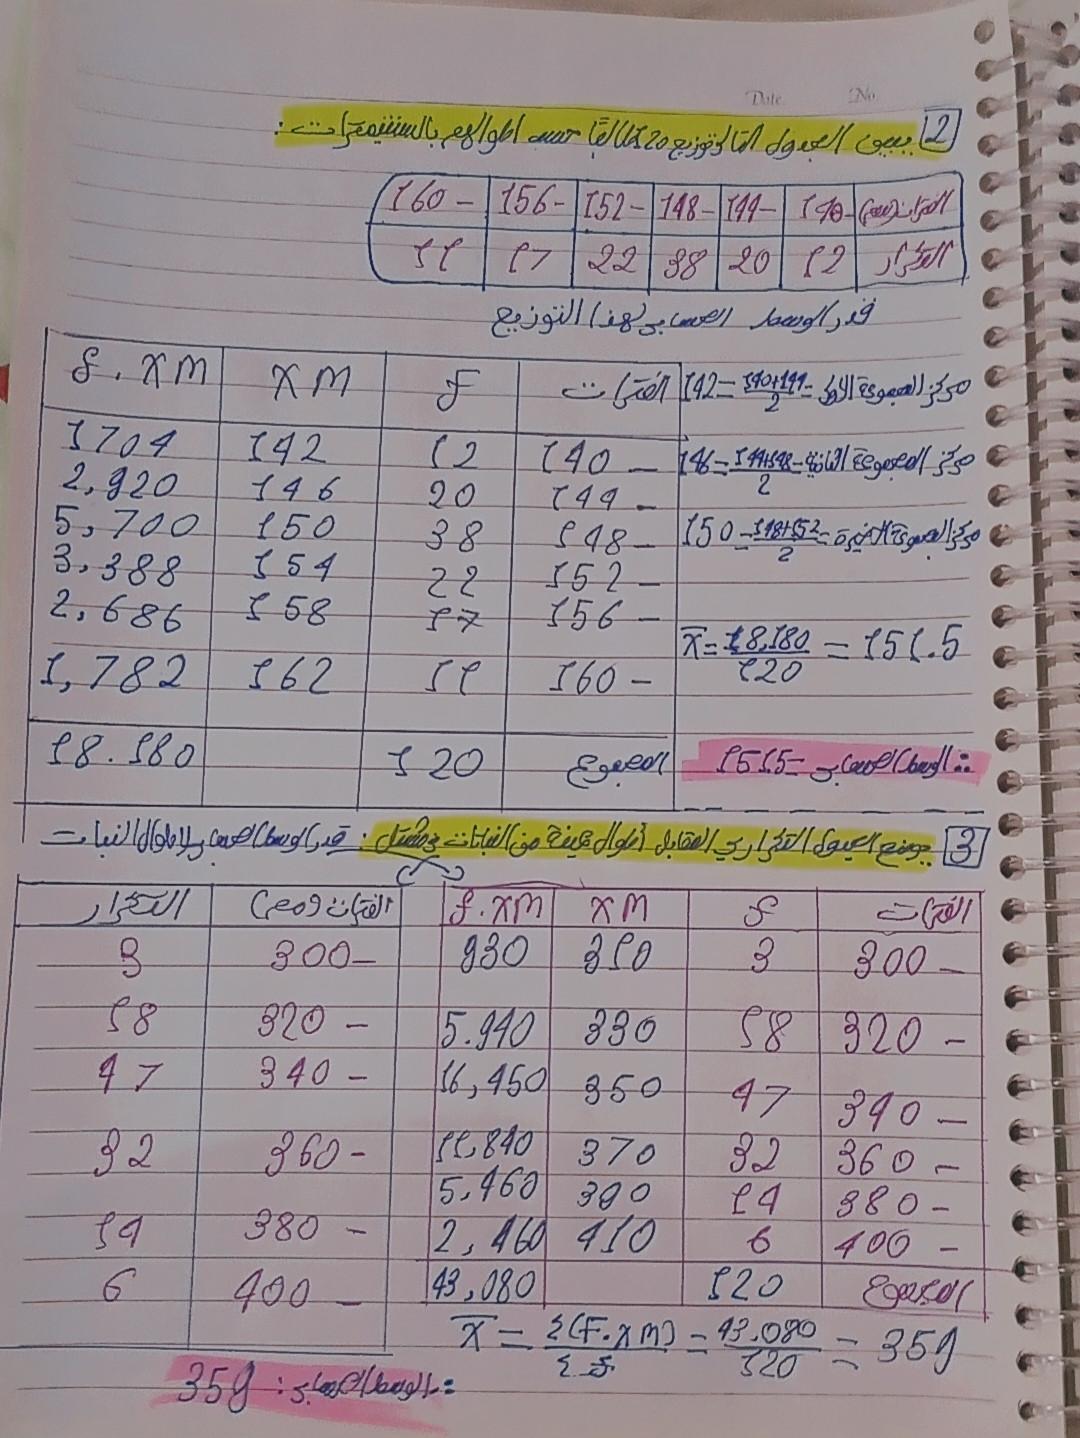 Date No
2 يبين الجدول التالي توزيع 120 طالبًا حسب اطوالهم بالسنتيمترات:
الفترات (سم) 140- 144- 148- 152- 156- 160-
التكرار 12 20 38 22 17 11
قدر الوسط الحسابي لهذا التوزيع
الفترات f XM f.XM
140 - 12 142 1704
144 - 20 146 2,920
148 - 38 150 5,700
152 - 22 154 3,388
156 - 17 158 2,686
160 - 11 162 1,782
المجموع 120 18.180
مركز المجموعة الاولى = 140+144/2 = 142
مركز المجموعة الثانية = 144+148/2 = 146
مركز المجموعة = 148+152/2 = 150
x̄ = 18,180/120 = 151.5
∴ الوسط الحسابي = 151.5
3 يوضح الجدول التكراري المقابل أطوال عينة من النباتات : قدر الوسط الحسابي لأطوال النبات
الفترات f XM f.XM
300 - 3 310 930
320 - 18 330 5.940
340 - 47 350 16,450
360 - 32 370 11,840
380 - 14 390 5,460
400 - 6 410 2,460
المجموع 120 43,080
الفترات (سم) التكرار
300 - 3
320 - 18
340 - 47
360 - 32
380 - 14
400 - 6
x̄ = Σ(F.XM)/Σf = 43.080/120 = 359
∴ الوسط الحسابي : 359